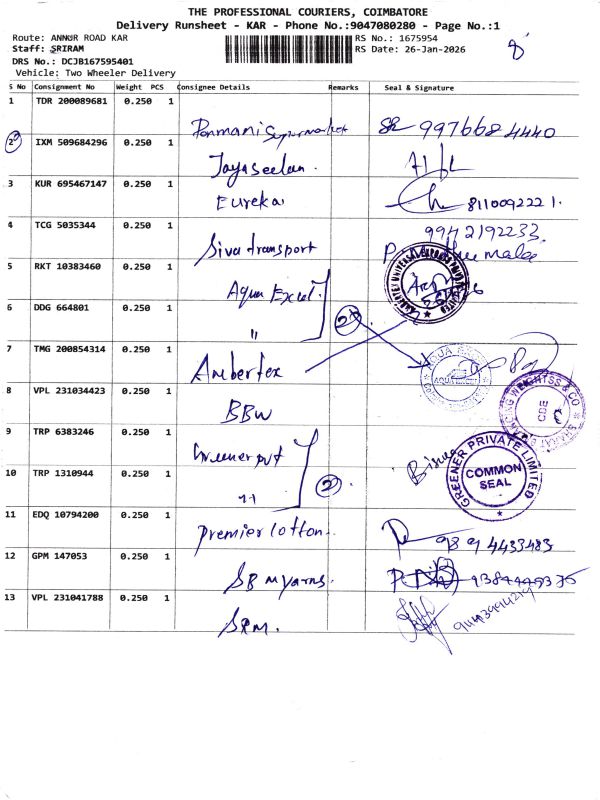 THE PROFESSIONAL COURIERS, COIMBATORE
Delivery Runsheet - KAR - Phone No.:9047080280 - Page No.:1
Route: ANNUR ROAD KAR
RS No.: 1675954
Staff: SRIRAM
RS Date: 26-Jan-2026
8
DRS No.: DCJB167595401
Vehicle: Two Wheeler Delivery
S No Consignment No Weight PCS Consignee Details Remarks Seal & Signature
1 TDR 200089681 0.250 1 Ponmani Supermarket 9976684440
2 IXM 509684296 0.250 1 Jayaseelan.
3 KUR 695467147 0.250 1 Eureka 8110092221.
4 TCG 5035344 0.250 1 Siva transport 9942192233
5 RKT 10383460 0.250 1 Aqua Excel
6 DDG 664801 0.250 1 "
2
7 TMG 200854314 0.250 1 Ambertex
8 VPL 231034423 0.250 1 BBW
9 TRP 6383246 0.250 1 Greener pvt
10 TRP 1310944 0.250 1 "
2
GREENER PRIVATE LIMITED
COMMON SEAL
11 EDQ 10794200 0.250 1 premier cotton 9894433483
12 GPM 147053 0.250 1 SB myarns.
13 VPL 231041788 0.250 1 SRM.